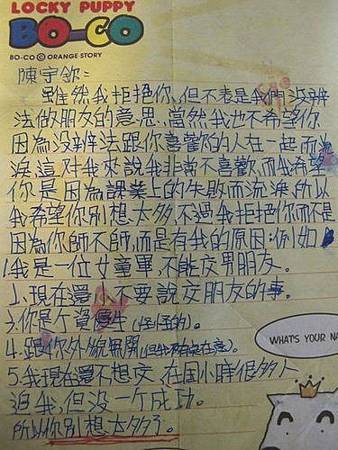 LOCKY PUPPY
BO-CO
BO-CO © ORANGE STORY
陳宇欽:
雖然我拒絕你,但不表是我們沒辨
法做朋友的意思,當然我也不希望你
因為沒辨法跟你喜歡的人在一起而流
淚,這對我來說我非常不喜歡,而我希望
你是因為課業上的失敗而流淚,所以
我希望你別想太多,不過我拒絕你而不是
因為你帥不帥,而是有我的原因:例如
1.我是一位女童軍,不能交男朋友。
2.現在還小,不要說交朋友的事。
3.你是个資優生(怪怪的)。
4.跟你外貌無関(但我不在意)。
5.我現在還不想交,在国小時很多人
追我,但没一个成功。
所以你別想太多了。
WHAT'S YOUR NA